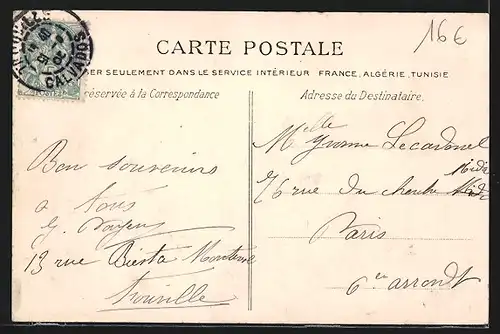 16€
CARTE POSTALE
SER SEULEMENT DANS LE SERVICE INTÉRIEUR FRANCE, ALGÉRIE, TUNISIE
réservée à la Correspondance
Adresse du Destinataire.
CALVADOS
Bon souvenirs
a tous
13 rue Biesta Monterne
Trouville
Melle Yvonne Lecardonnel
76 rue du cherche Midi
Paris
6e arrondt